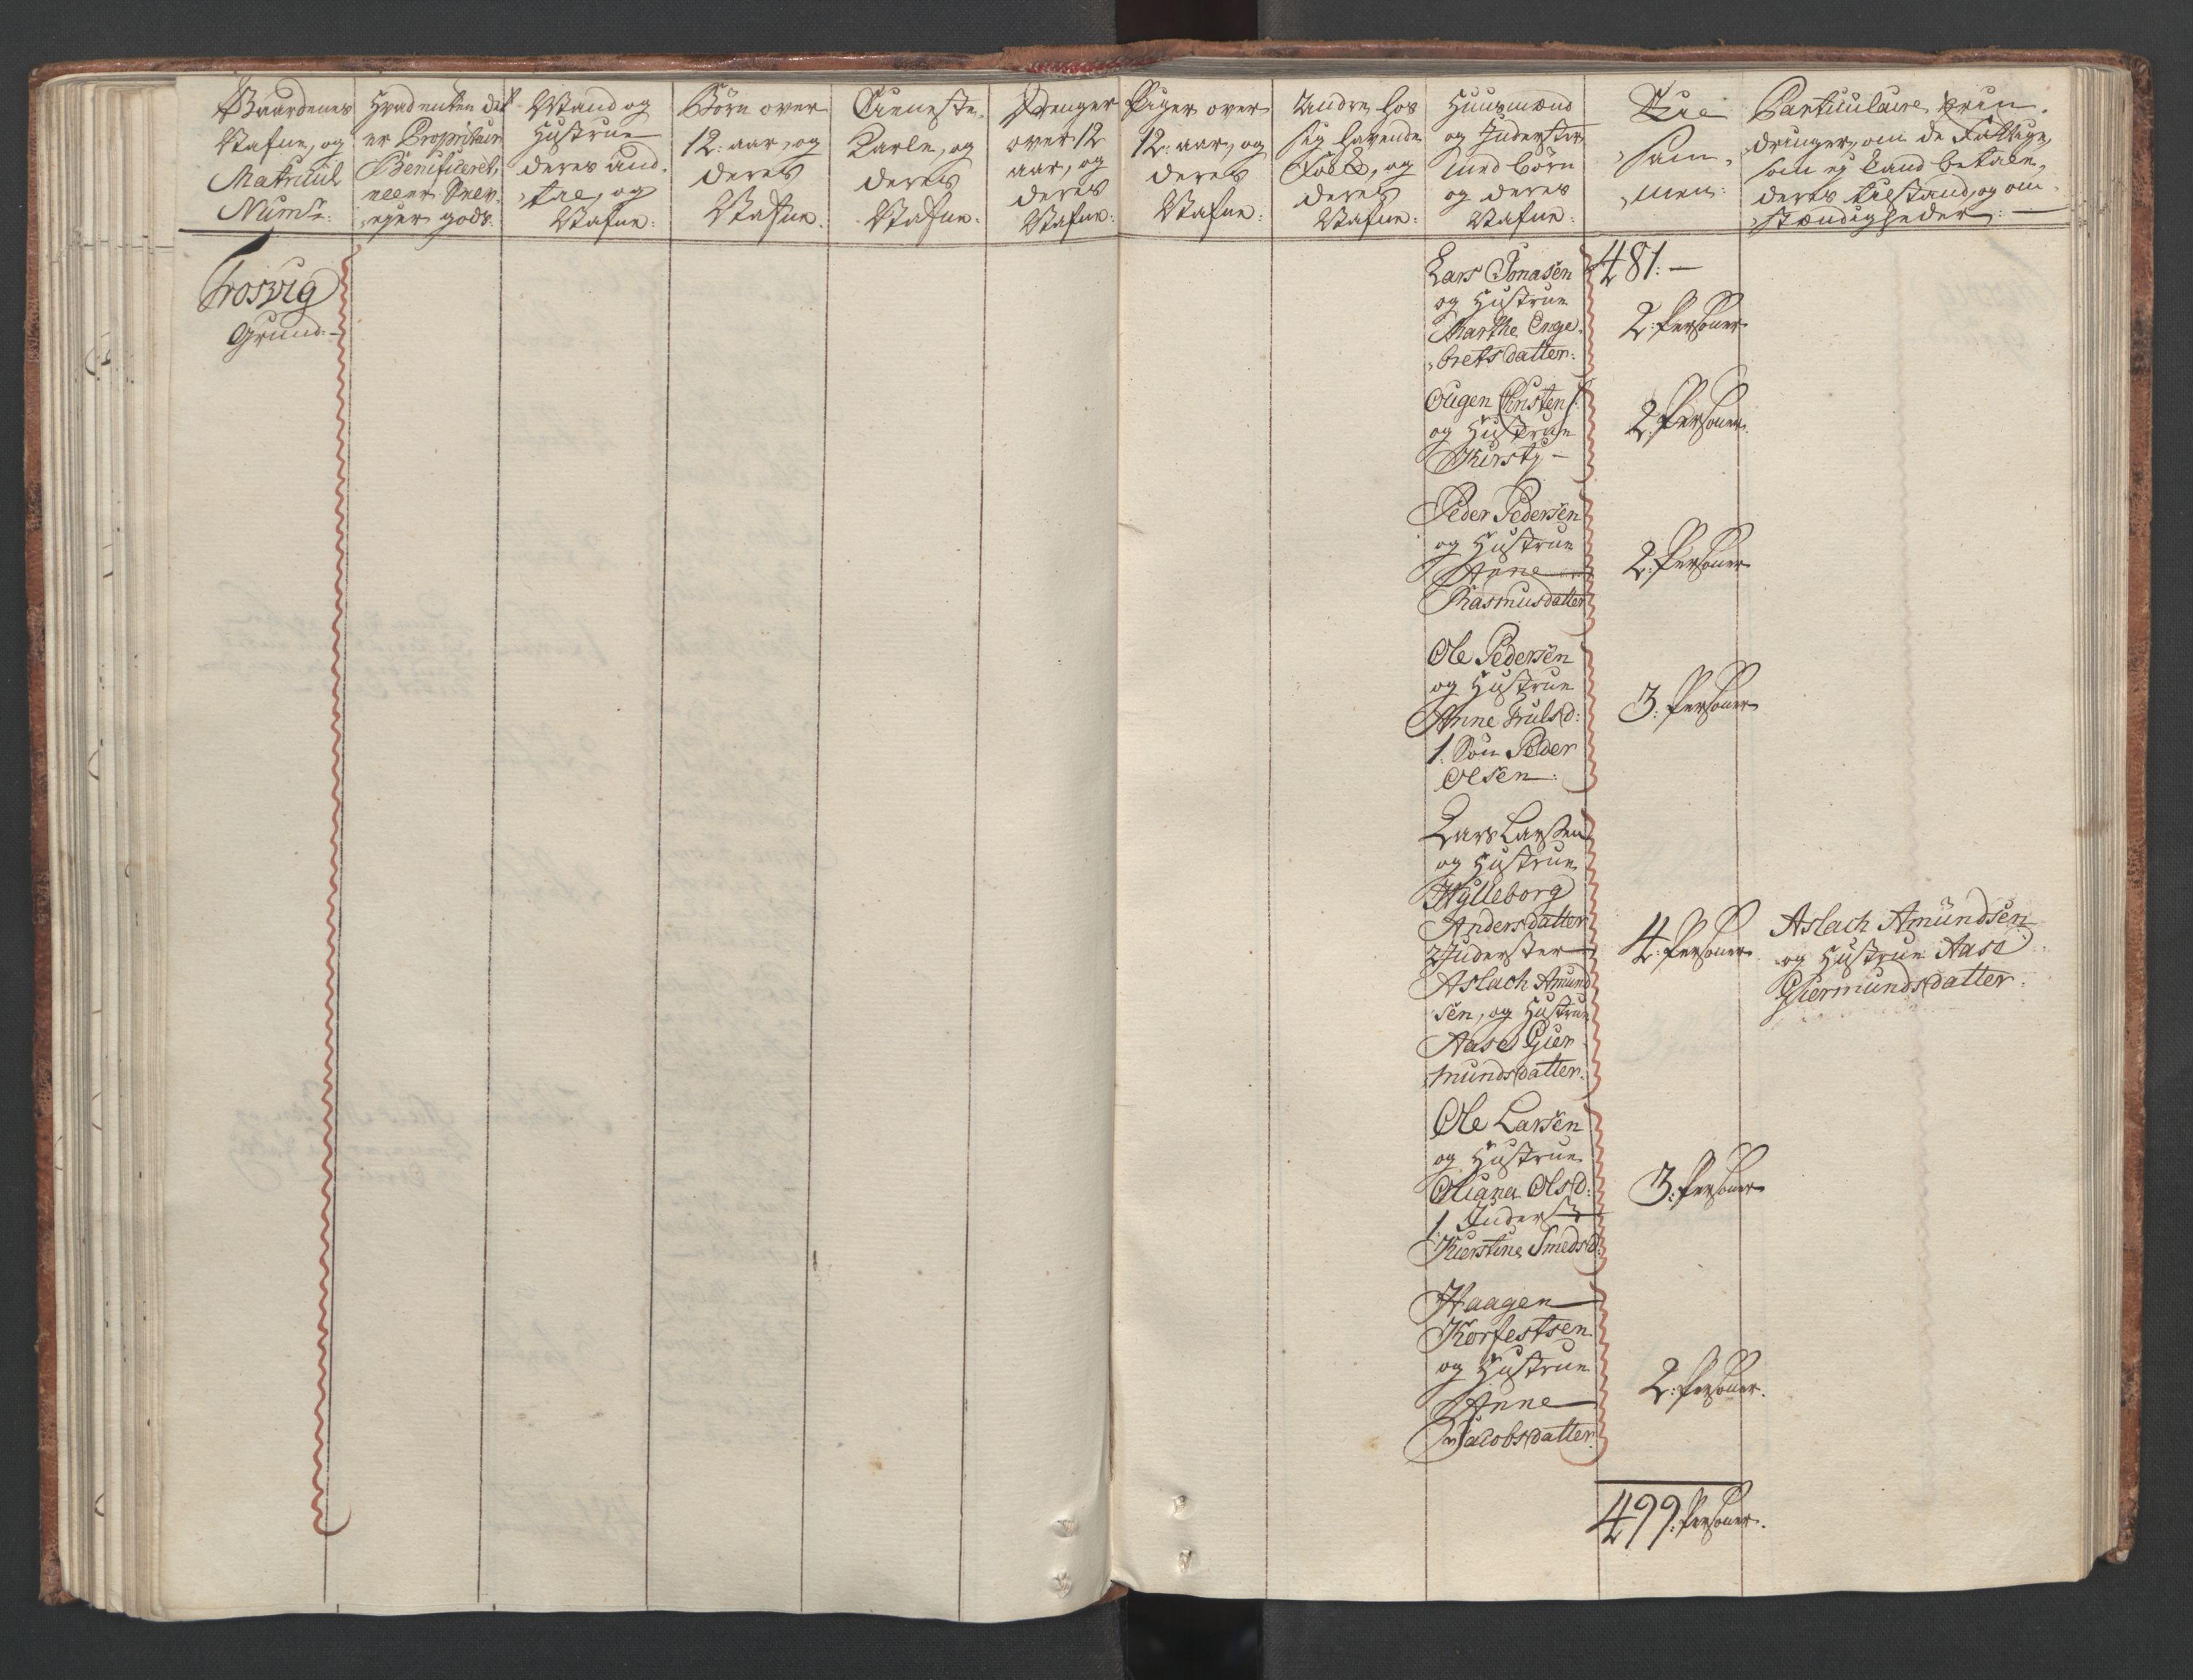 Gaardenes
Nafne, og
Matricul
Numr:
Hvad enten det
er Proprietair
Beneficeret,
eller Selv-
ejer gods.
Mand og
Hustrue
deres and-
tal, og
Nafne:
Børn over
12: aar, og
deres
Nafne.
Tieneste
Karle, og
deres
Nafne.
Drenger
over 12
aar, og
deres
Nafne:
Piger over
12: aar, og
deres
Nafne:
Andre hos
sig havende
Folk, og
deres
Nafne:
Huusmænd
og Inderster
med børn
og deres
Nafne:
Til
sam-
men:
Particulaire erin-
dringer, om de Fattige,
som ej kand betale,
deres tilstand, og om-
stændigheder: —
Trosvig
Grund:-
Lars Jonasen
og Hustrue
Marthe Enge-
bretsdatter:
481:—
2: Personer
Ougen Christens:
og Hustrue
Kirsty —
2: Personer.
Peder Pedersen
og Hustrue
Anne
Rasmusdatter
2: Personer
Ole Pedersen
og Hustrue
Anne Trulsd:
1. Søn Peder
Olsen:
3: Personer
Lars Larsen
og Hustrue
Hylleborg
Andersdatter
2 Inderster
Aslach Amund
sen, og Hustrue
Aase Gier-
mundsdatter.
4: Personer
Aslach Amundsen
og Hustrue Aase
Giermundsdatter.
Ole Larsen
og Hustrue
Oliana Olsd:
1. Inderst
Kierstine Smedsd:
3: Personer
Haagen
Korfestsen
og Hustrue
Anne
Jacobsdatter.
2: Personer.
499: Personer.